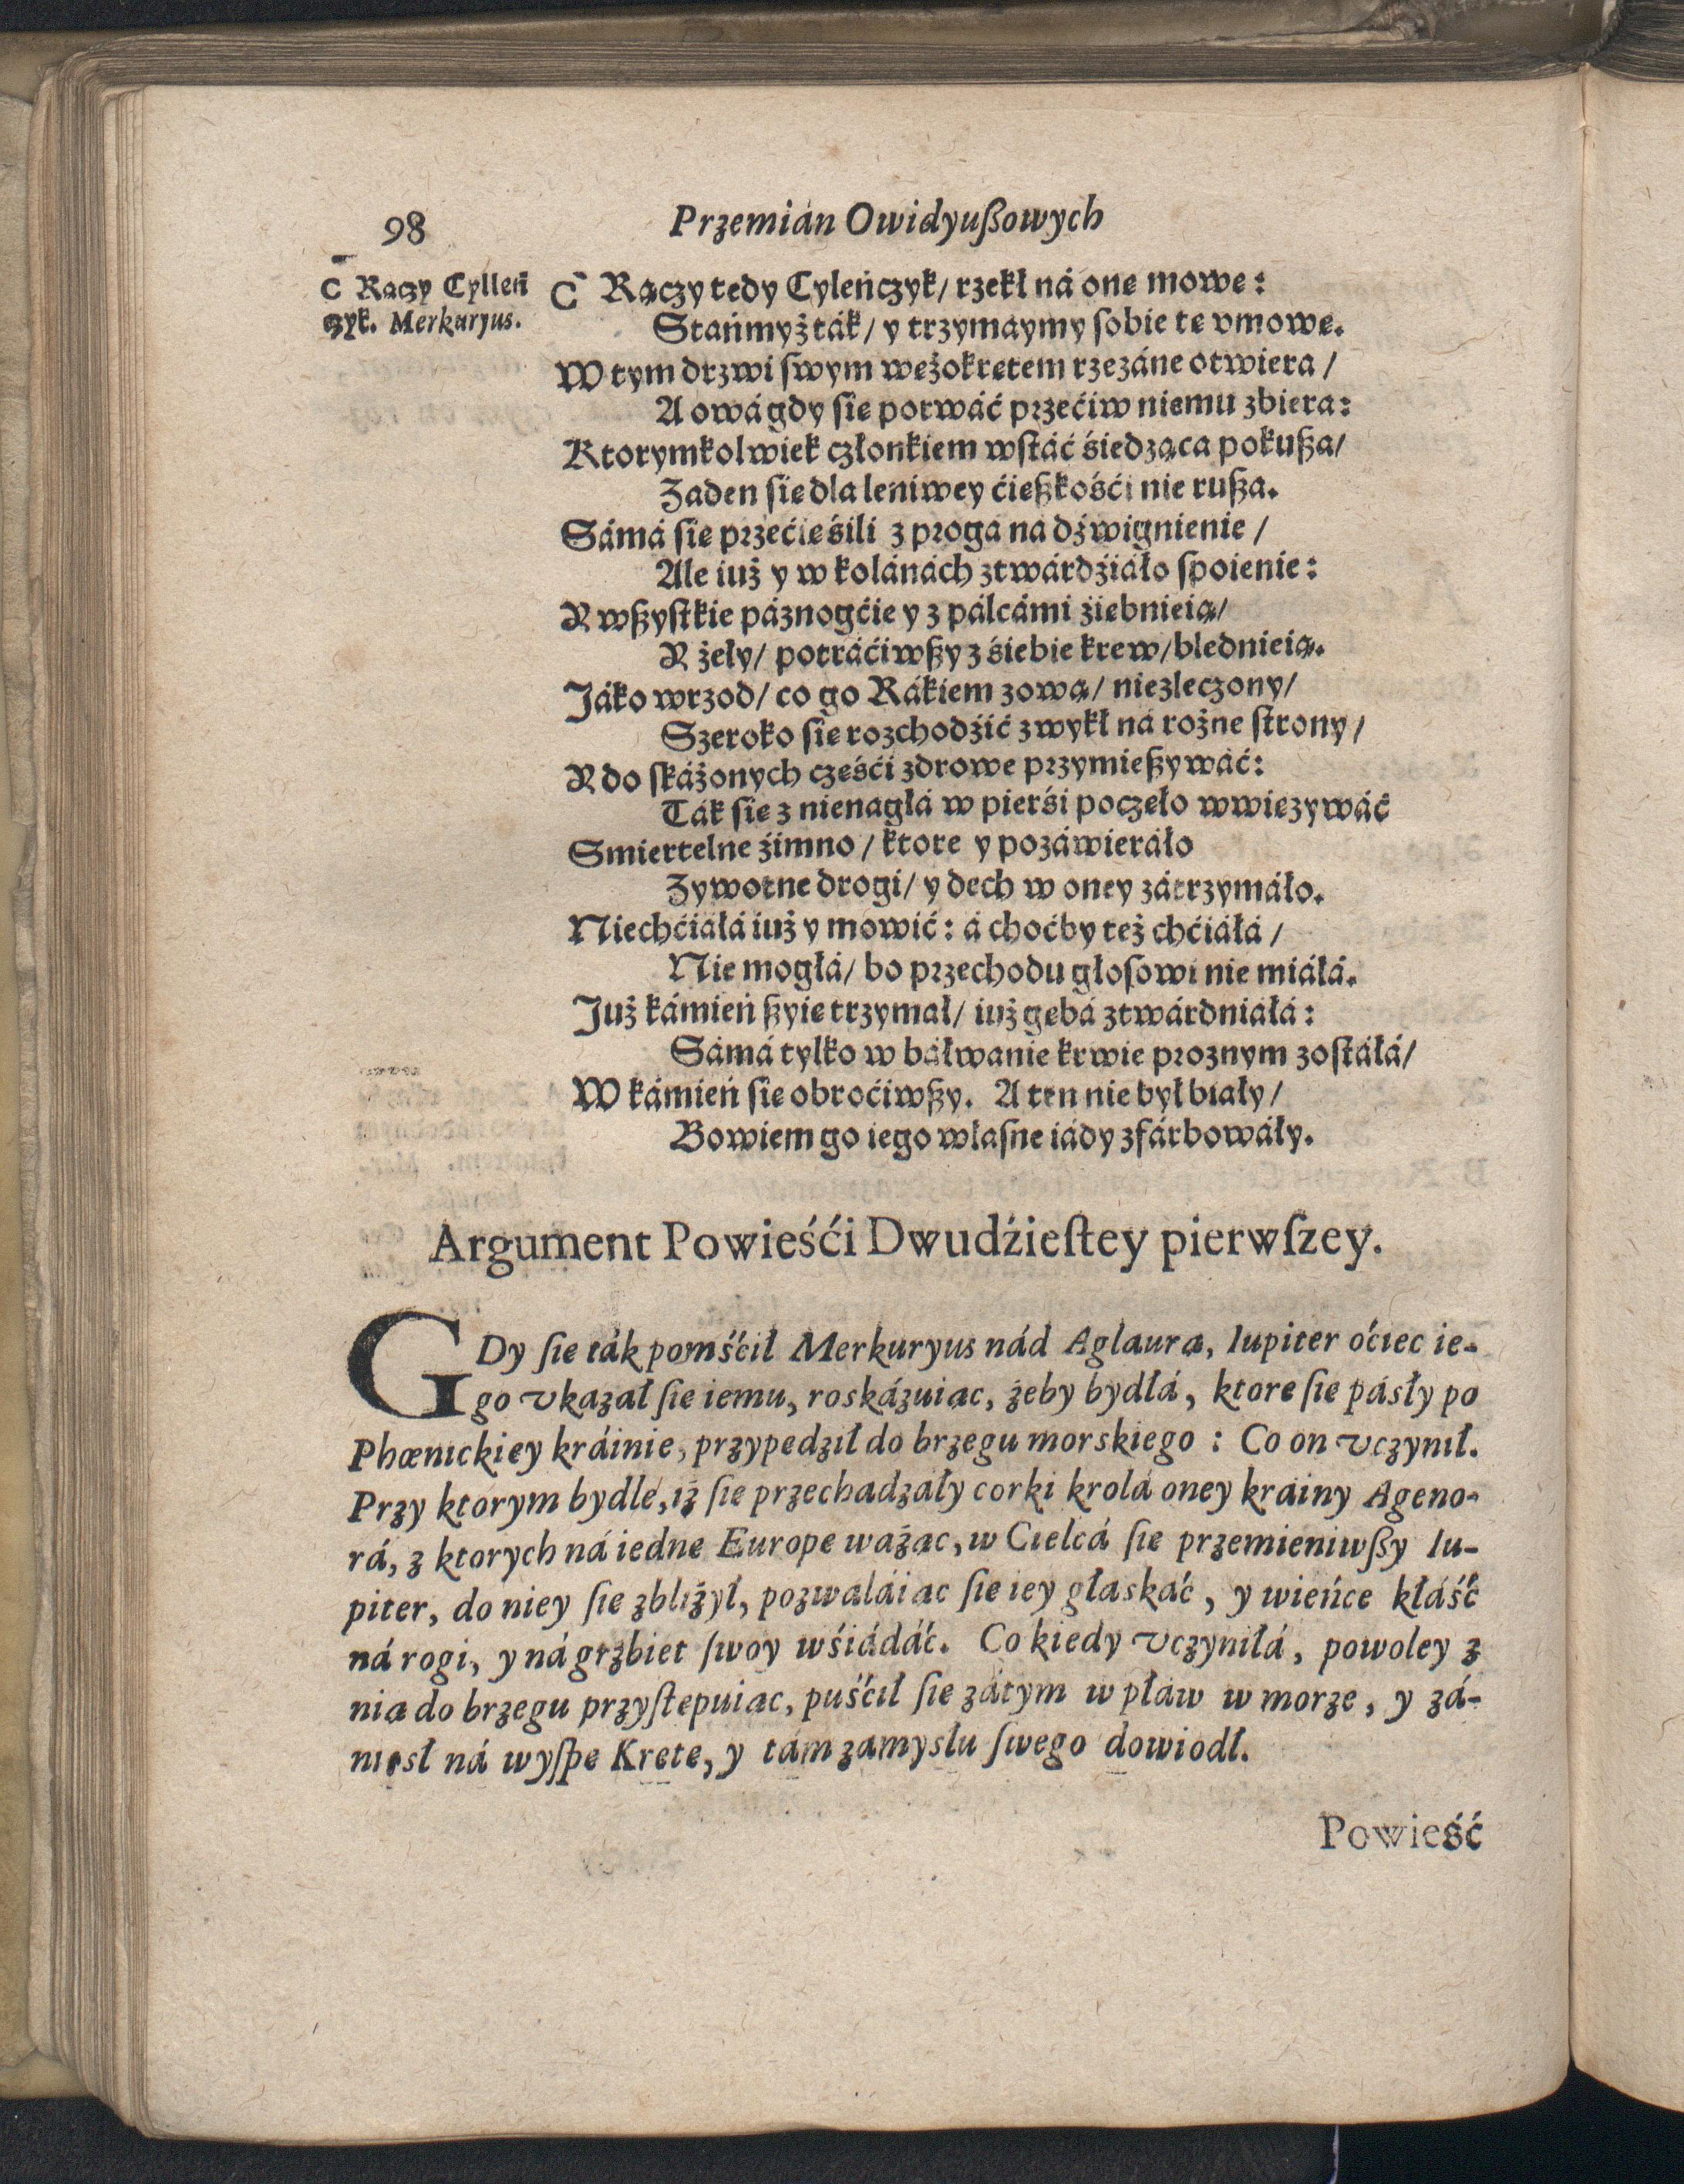 98
Przemian Owidyußowych
C Rączy Cylleń
czyk. Merkuryus.
C Rączy tedy Cyleńczyk/ rzekł ná one mowe:
Stańmyż ták/ y trzymaymy sobie te vmowe.
W tym drzwi swym wężokrętem rzezáne otwiera/
A owá gdy sie porwáć przećiw niemu zbiera:
Ktorymkolwiek członkiem wstáć śiedząca pokußa/
Zaden sie dla leniwey ćięßkośći nie rußa.
Sámá sie przećię śili z progá na dźwignienie/
Ale iuż y w kolánách ztwárdźiáło spoienie:
Y wßystkie páznogćie y z pálcámi źiębnieią/
Y żeły/ potráćiwßy z śiebie krew/ blednieią.
Jáko wrzod/ co go Rákiem zową/ niezleczony/
Szeroko sie rozchodźić zwykł ná rożne strony/
Y do skáżonych części zdrowe przymießywáć:
Ták sie z nienagłá w pierśi poczęło wwięzywáć
Smiertelne źimno/ ktore y pozáwieráło
Zywotne drogi/ y dech w oney zátrzymáło.
Niechćiáłá iuż y mowić: á choćby też chćiáłá/
Nie mogłá/ bo przechodu głosowi nie miáłá.
Już kámień ßyię trzymał/ iuż gębá ztwárdniáłá:
Sámá tylko w báłwanie krwie proznym zostáłá/
W kámień sie obroćiwßy. A ten nie był biały/
Bowiem go iego własne iády zfárbowáły.
Argument Powieśći Dwudźiestey pierwszey.
GDy sie ták pomśćił Merkuryus nád Aglaurą, Iupiter oćiec ie-
go vkazał sie iemu, roskázuiąc, żeby bydłá, ktore sie pásły po
Phœnickiey kráinie, przypędził do brzegu morskiego: Co on vczynił.
Przy ktorym bydle, iż sie przechadzały corki krolá oney krainy Ageno-
rá, z ktorych ná iednę Europę ważąc, w Cielcá sie przemieniwßy Iu-
piter, do niey sie zbliżył, pozwaláiąc sie iey głaskáć, y wieńce kłáść
ná rogi, y ná grzbiet swoy wśiádáć. Co kiedy vczyniłá, powoley z
nią do brzegu przystępuiąc, puśćił sie zátym w pław w morze, y zá-
niosł ná wyspę Kretę, y tám zamysłu swego dowiodł.
Powieść